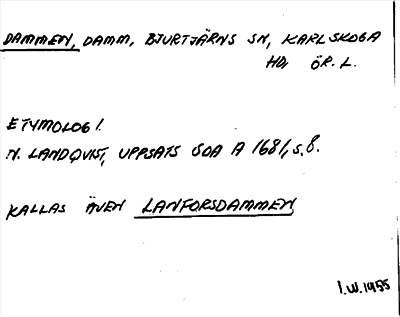 DAMMEN, DAMM, BJURTJÄRNS SN, KARLSKOGA
HD, ÖR. L.
ETYMOLOGI.
N. LANDQVIST, UPPSATS SOA A 1681, S. 8.
KALLAS ÄVEN LANFORSDAMMEN
I.W. 1955